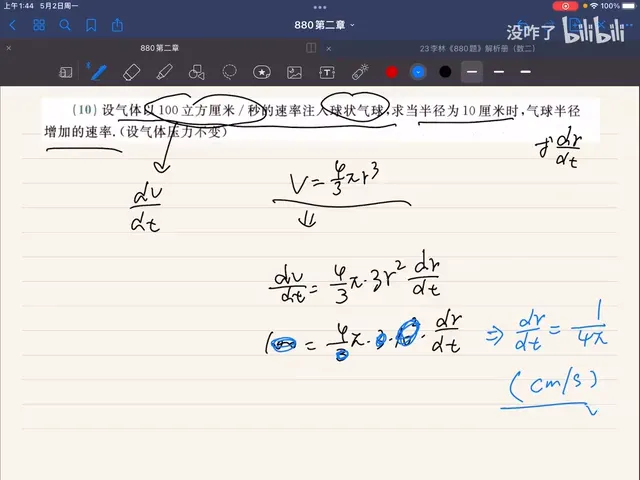 上午1:44 5月2日周一
100%
880 第二章
没咋了 bilibili
880 第二章
23李林《880题》解析册（数二）
(10) 设气体以 100 立方厘米/秒的速率注入球状气球,求当半径为 10 厘米时,气球半径
增加的速率.(设气体压力不变)
求 dr/dt
dv/dt
V = 4/3 πr³
dv/dt = 4/3 π · 3r² dr/dt
100 = 4/3 π · 3 · 10² · dr/dt ⇒ dr/dt = 1/4π
(cm/s)